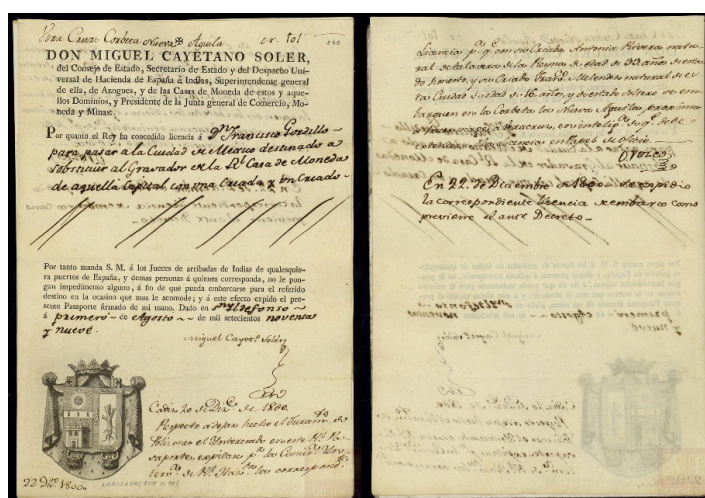 Vera Cruz. Corbeta Nueva Aguila cr. tot
DON MIGUEL CAYETANO SOLER,
del Consejo de Estado, Secretario de Estado y del Despacho Uni-
versal de Hacienda de España é Indias, Superintendente general
de ella, de Azogues, y de las Casas de Moneda de estos y aque-
llos Dominios, y Presidente de la Junta general de Comercio, Mo-
neda y Minas:
Por quanto el Rey ha concedido licencia á Dn. Francisco Gordillo
para pasar á la Ciudad de Mexico destinado a
substituir al Gravador en la Rl. Casa de Moneda
de aquella Capital con una Criada y un Criado
Por tanto manda S. M. á los Jueces de arribadas de Indias de qualesquie-
ra puertos de España, y demas personas á quienes corresponda, no le pon-
gan impedimento alguno, á fin de que pueda embarcarse para el referido
destino en la ocasion que mas le acomode; y á este efecto expido el pre-
sente Pasaporte firmado de mi mano. Dado en Sn. Ildefonso
á primero de Agosto de mil setecientos noventa
y nueve.
Miguel Cayet. Soler
Cadiz 20 de Dize. de 1800.
Respecto a dejar hecho el Juramto. de
el Interesado en este Rl. Pa-
saporte,
de Rl. la correspond.
22 Dize. 1800
ARRIBADAS, 519 N. 101
Licencia pa. qe. con su Criada Antonia Rivera natu-
ral de Talavera de la Reyna de edad de 33 años de esta-
do honesto, y su Criado Franco. Melendez natural de es-
ta Ciudad de edad de 16 años, y de estado soltero se em-
barquen en la Corbeta la Nueva Aguila proxima
a Veracruz, en intelig. de qe. debe
extenderse la licencia en papel de oficio.
Orozco
En 22. de Diciembre de 1800. se expidio
la correspondiente licencia de embarco como
previene el antr. Decreto.